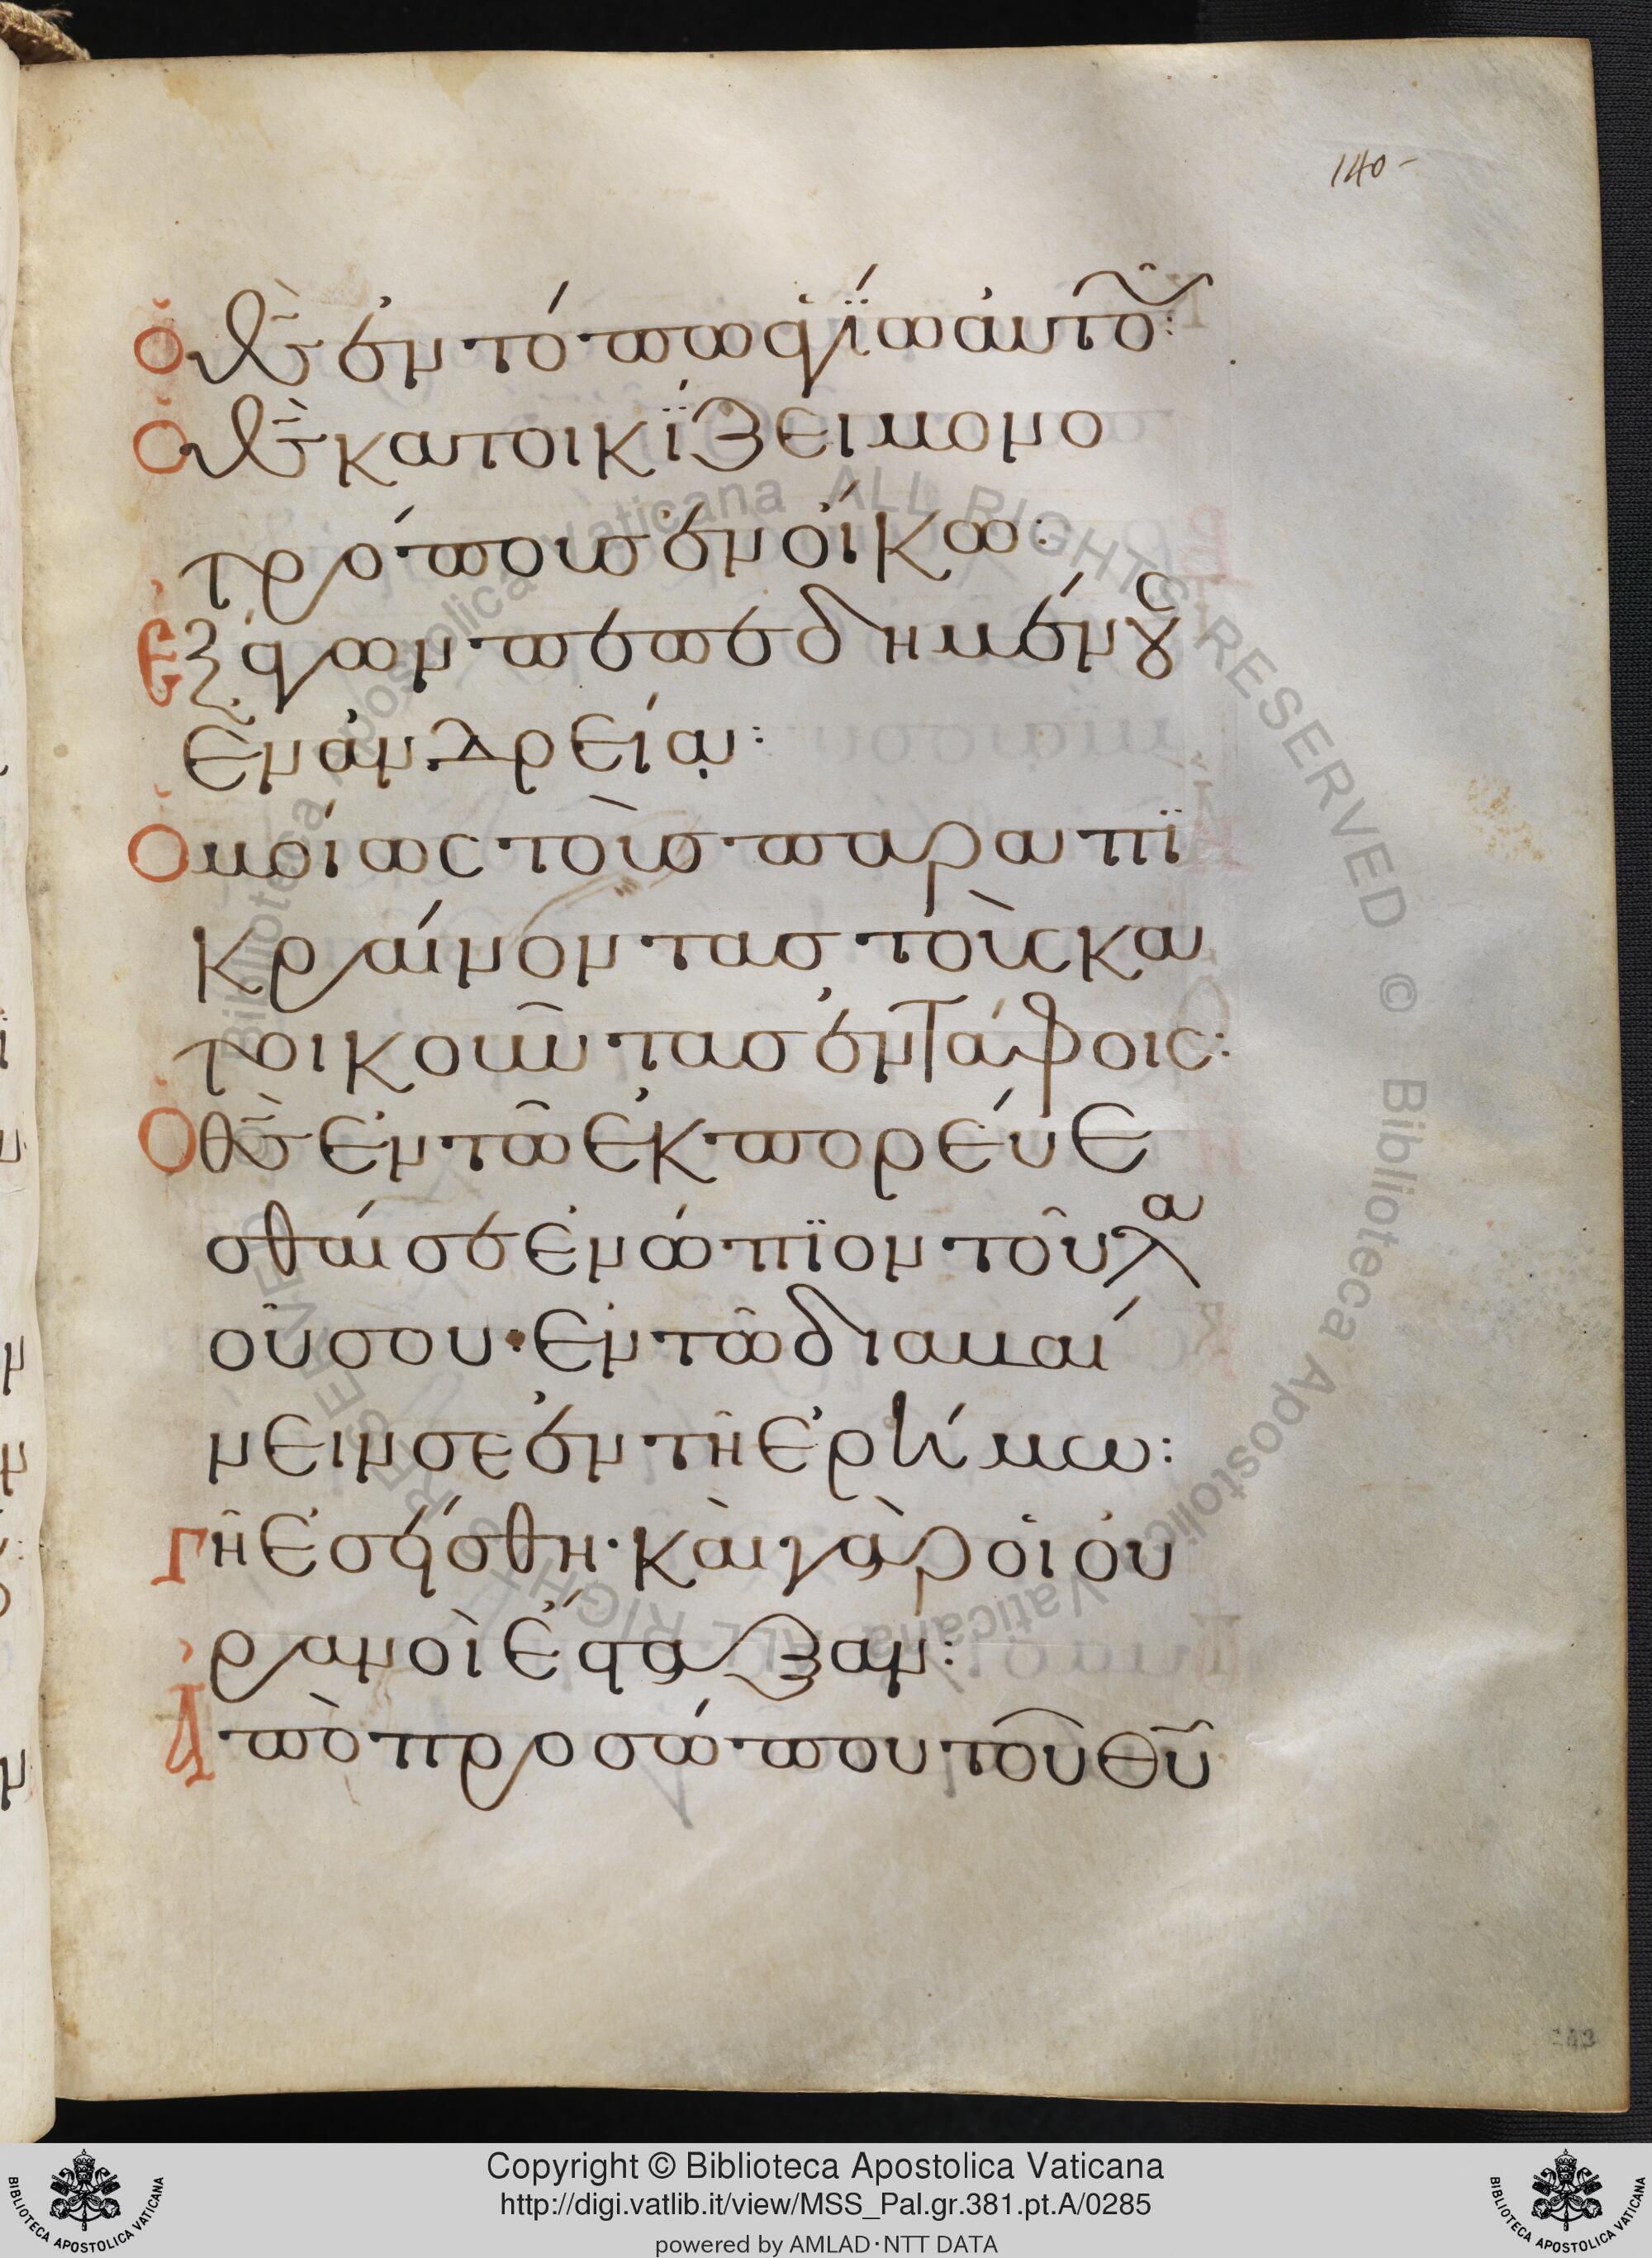 140-
ὁ θς̅ ἐν τόπω ἁγίω αὐτοῦ:
Ὁ θς̅ κατοικίζει μονο
τρόπους ἐν οἴκω:
Ἐξάγων πεπεδημένους
ἐν ἀνδρεία:
Ὁμοίως τοὺς παραπϊ
κραίνοντας τοὺς κα
τοικοῦντας ἐν τάφοις:
Ὁ θς̅ ἐν τῶ ἐκπορεύε
σθαί σε ἐνώπϊον τοῦ λα
οῦ σου· ἐν τῶ διαβαί
νειν σε ἐν τῆ ἐρήμω:
Γῆ ἐσείσθη· καὶ γὰρ οἱ οὐ
ρανοὶ ἔσταξαν:
Ἀπὸ προσώπου τοῦ θυ̅
Copyright © Biblioteca Apostolica Vaticana
http://digi.vatlib.it/view/MSS_Pal.gr.381.pt.A/0285
powered by AMLAD·NTT DATA
BIBLIOTECA APOSTOLICA VATICANA
BIBLIOTECA APOSTOLICA VATICANA